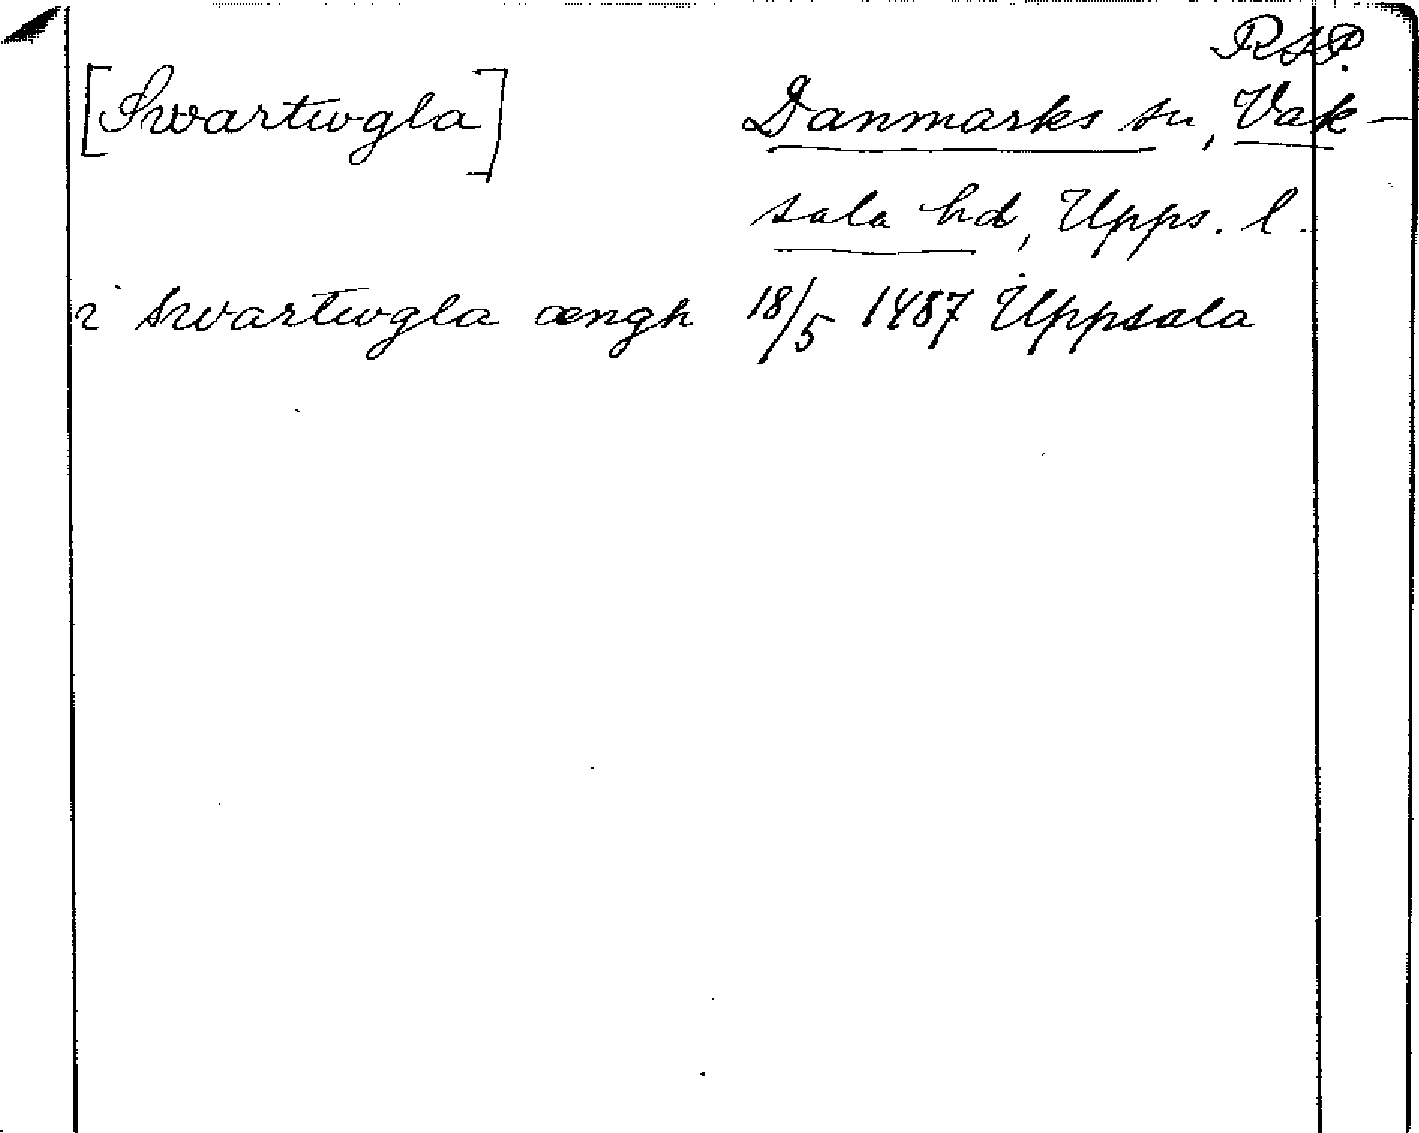 RAP.
[Swartwgla] Danmarks sn, Vak-
sala hd, Upps. l.
i swartwgla ængh 18/5 1487 Uppsala